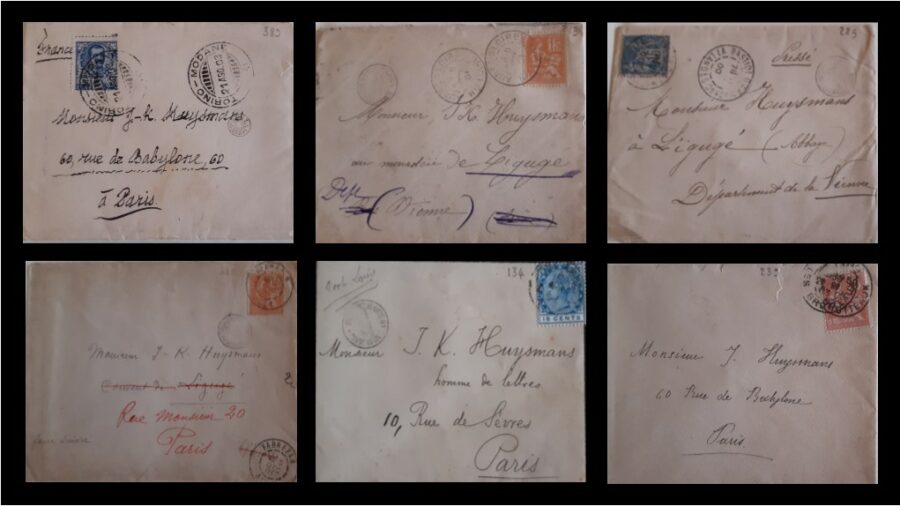 385
France
MODANE
TORINO
21 AGO 03
MODANE
TORINO
Monsieur J-K. Huysmans
60, rue de Babylone, 60
à Paris.
Monsieur, J K. Huysmans
au monastère de Ligugé
Dept
(Vienne)
285
Pressé
Monsieur Huysmans
à Ligugé (Abbaye
Département de la Vienne
Monsieur J-K. Huysmans
Couvent de Ligugé
Rue Monsieur 20
Paris
134
Port Louis
18 CENTS
Monsieur J. K. Huysmans
homme de lettres
10, Rue de Sèvres
Paris
Monsieur J. Huysmans
60 Rue de Babylone
Paris